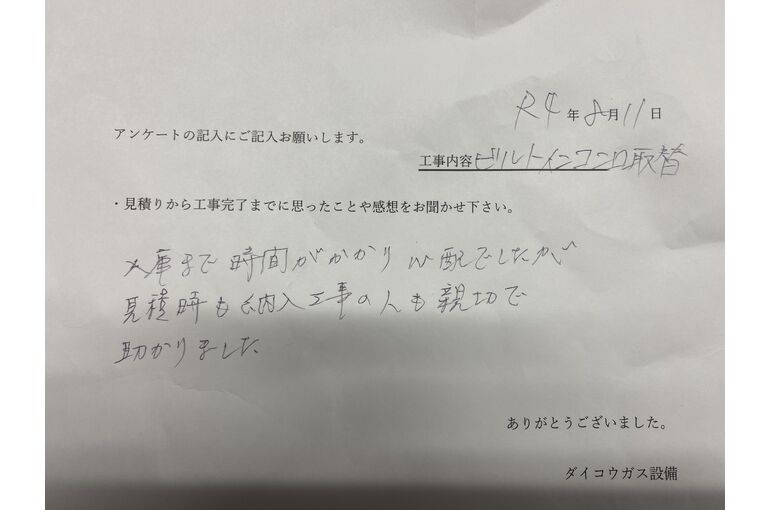 R4年8月11日
アンケートの記入にご記入お願いします。
工事内容 ビルトインコンロ取替
・見積りから工事完了までに思ったことや感想をお聞かせ下さい。
入庫まで時間がかかり心配でしたが
見積時も納入工事の人も親切で
助かりました。
ありがとうございました。
ダイコウガス設備